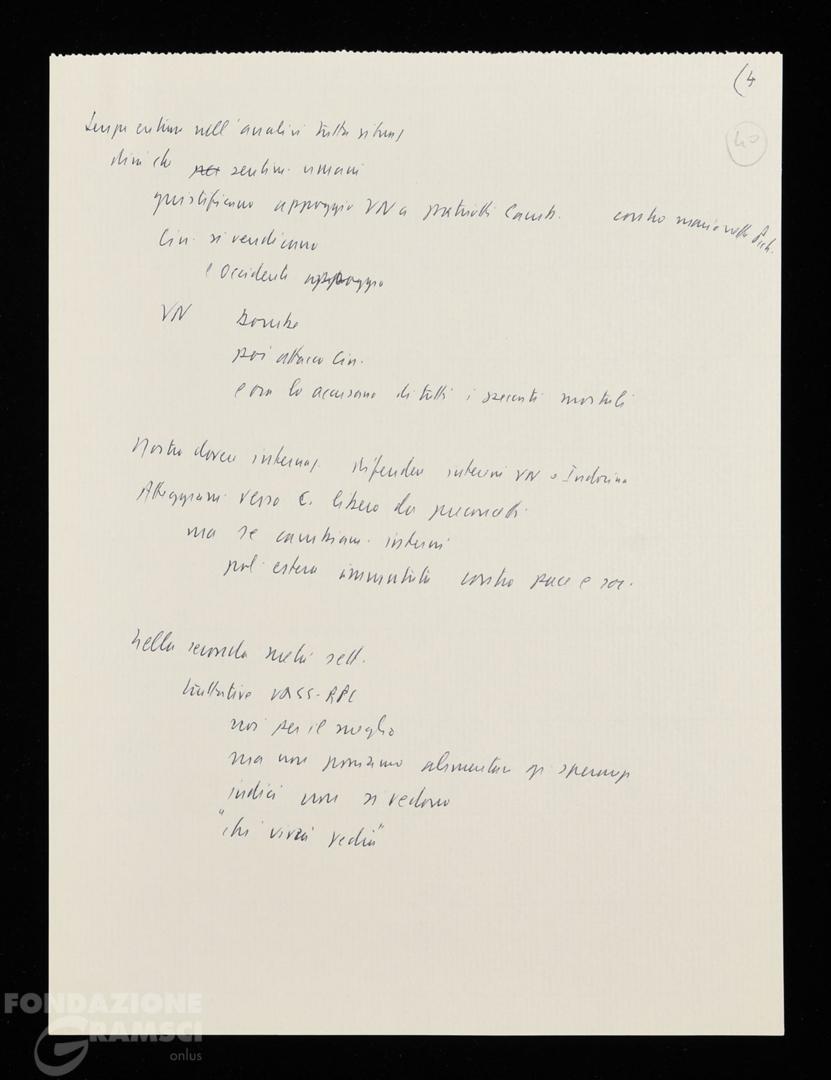 (4
40
nell'analisi tutta situaz
dirci che sentim. umani
giustificano appoggio VN a patrioti Camb. contro
Cin. si vendicano
e Occidente appoggia
VN bombe
poi attacco Cin.
e ora lo accusano di tutti i peccati mortali
Nostro dovere internaz. difendere interessi VN e Indocina
Atteggiam. verso C. libero da preconcetti
ma se cambiam. interni
pol. estera immutata contro pace e soc.
Nella seconda metà sett.
trattative URSS-RPC
noi per il meglio
ma non possiamo alimentare gr speranze
indici non si vedono
"chi vivrà vedrà"
FONDAZIONE
GRAMSCI
onlus